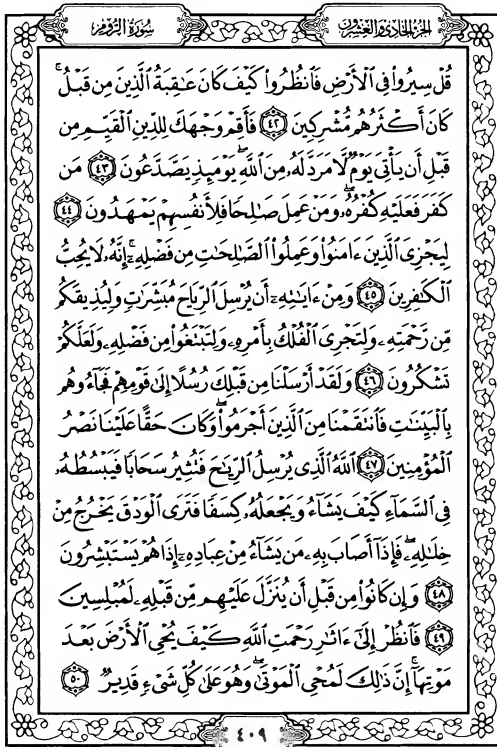 سُورَةُ الرُّومِ الجُزْءُ الحَادِي وَالْعِشْرُونَ
قُلْ سِيرُوا۟ فِى ٱلْأَرْضِ فَٱنظُرُوا۟ كَيْفَ كَانَ عَـٰقِبَةُ ٱلَّذِينَ مِن قَبْلُ ۚ
كَانَ أَكْثَرُهُم مُّشْرِكِينَ ﴿٤٢﴾ فَأَقِمْ وَجْهَكَ لِلدِّينِ ٱلْقَيِّمِ مِن
قَبْلِ أَن يَأْتِىَ يَوْمٌ لَّا مَرَدَّ لَهُۥ مِنَ ٱللَّهِ ۖ يَوْمَئِذٍ يَصَّدَّعُونَ ﴿٤٣﴾ مَن
كَفَرَ فَعَلَيْهِ كُفْرُهُۥ ۖ وَمَنْ عَمِلَ صَـٰلِحًا فَلِأَنفُسِهِمْ يَمْهَدُونَ ﴿٤٤﴾
لِيَجْزِىَ ٱلَّذِينَ ءَامَنُوا۟ وَعَمِلُوا۟ ٱلصَّـٰلِحَـٰتِ مِن فَضْلِهِۦٓ ۚ إِنَّهُۥ لَا يُحِبُّ
ٱلْكَـٰفِرِينَ ﴿٤٥﴾ وَمِنْ ءَايَـٰتِهِۦٓ أَن يُرْسِلَ ٱلرِّيَاحَ مُبَشِّرَٰتٍ وَلِيُذِيقَكُم
مِّن رَّحْمَتِهِۦ وَلِتَجْرِىَ ٱلْفُلْكُ بِأَمْرِهِۦ وَلِتَبْتَغُوا۟ مِن فَضْلِهِۦ وَلَعَلَّكُمْ
تَشْكُرُونَ ﴿٤٦﴾ وَلَقَدْ أَرْسَلْنَا مِن قَبْلِكَ رُسُلًا إِلَىٰ قَوْمِهِمْ فَجَآءُوهُم
بِٱلْبَيِّنَـٰتِ فَٱنتَقَمْنَا مِنَ ٱلَّذِينَ أَجْرَمُوا۟ ۖ وَكَانَ حَقًّا عَلَيْنَا نَصْرُ
ٱلْمُؤْمِنِينَ ﴿٤٧﴾ ٱللَّهُ ٱلَّذِى يُرْسِلُ ٱلرِّيَـٰحَ فَتُثِيرُ سَحَابًا فَيَبْسُطُهُۥ
فِى ٱلسَّمَآءِ كَيْفَ يَشَآءُ وَيَجْعَلُهُۥ كِسَفًا فَتَرَى ٱلْوَدْقَ يَخْرُجُ مِنْ
خِلَـٰلِهِۦ ۖ فَإِذَآ أَصَابَ بِهِۦ مَن يَشَآءُ مِنْ عِبَادِهِۦٓ إِذَا هُمْ يَسْتَبْشِرُونَ
﴿٤٨﴾ وَإِن كَانُوا۟ مِن قَبْلِ أَن يُنَزَّلَ عَلَيْهِم مِّن قَبْلِهِۦ لَمُبْلِسِينَ
﴿٤٩﴾ فَٱنظُرْ إِلَىٰٓ ءَاثَـٰرِ رَحْمَتِ ٱللَّهِ كَيْفَ يُحْىِ ٱلْأَرْضَ بَعْدَ
مَوْتِهَآ ۚ إِنَّ ذَٰلِكَ لَمُحْىِ ٱلْمَوْتَىٰ ۖ وَهُوَ عَلَىٰ كُلِّ شَىْءٍ قَدِيرٌ ﴿٥٠﴾
٤٠٩